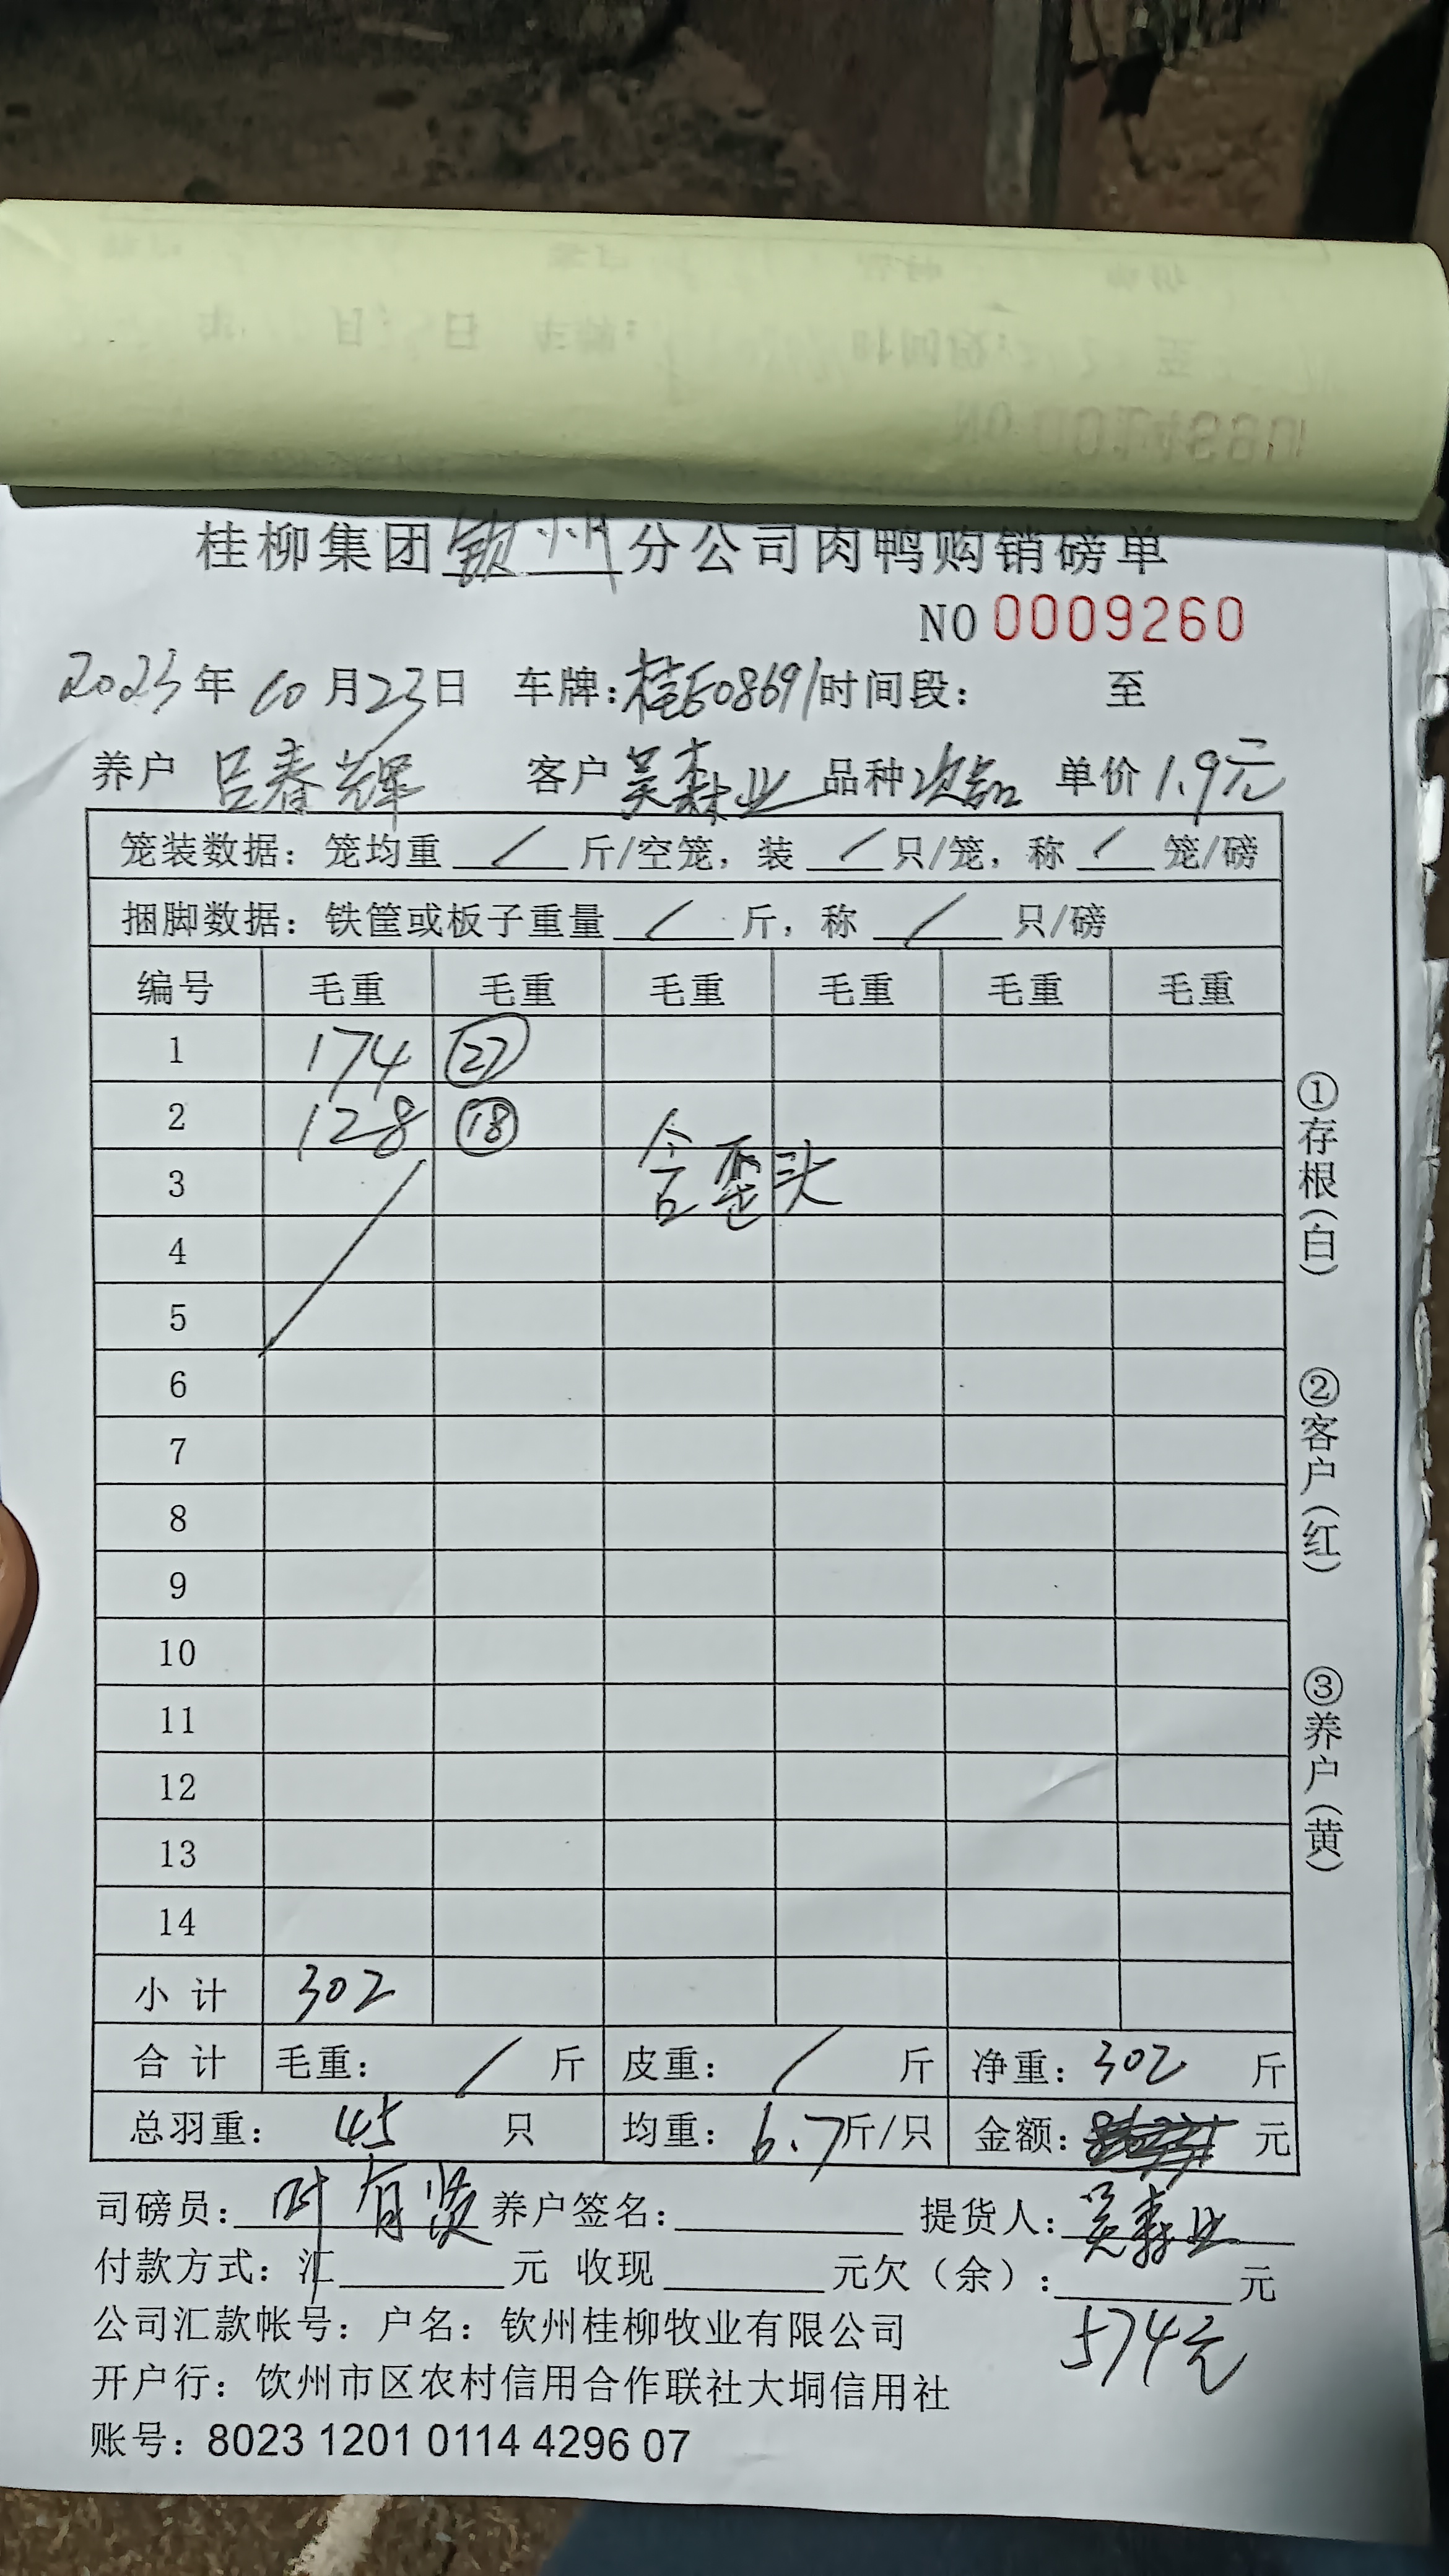 桂柳集团钦州分公司肉鸭购销磅单
NO 0009260
2023年10月23日 车牌:桂E08691 时间段: 至
养户 吕春辉 客户 吴森业 品种 次品 单价 1.9元
笼装数据: 笼均重 / 斤/空笼, 装 / 只/笼, 称 / 笼/磅
捆脚数据: 铁筐或板子重量 / 斤, 称 / 只/磅
编号 毛重 毛重 毛重 毛重 毛重 毛重
1 174 27
2 128 18
含歪头
3
4
5
6
7
8
9
10
11
12
13
14
小计 302
合计 毛重: / 斤 皮重: / 斤 净重: 302 斤
总羽重: 45 只 均重: 6.7斤/只 金额: 元
司磅员: 叶有贤 养户签名: 提货人: 吴森业
付款方式: 汇 元 收现 元欠(余): 元
574元
公司汇款帐号: 户名: 钦州桂柳牧业有限公司
开户行: 饮州市区农村信用合作联社大垌信用社
账号: 8023 1201 0114 4296 07
①存根(白)
②客户(红)
③养户(黄)